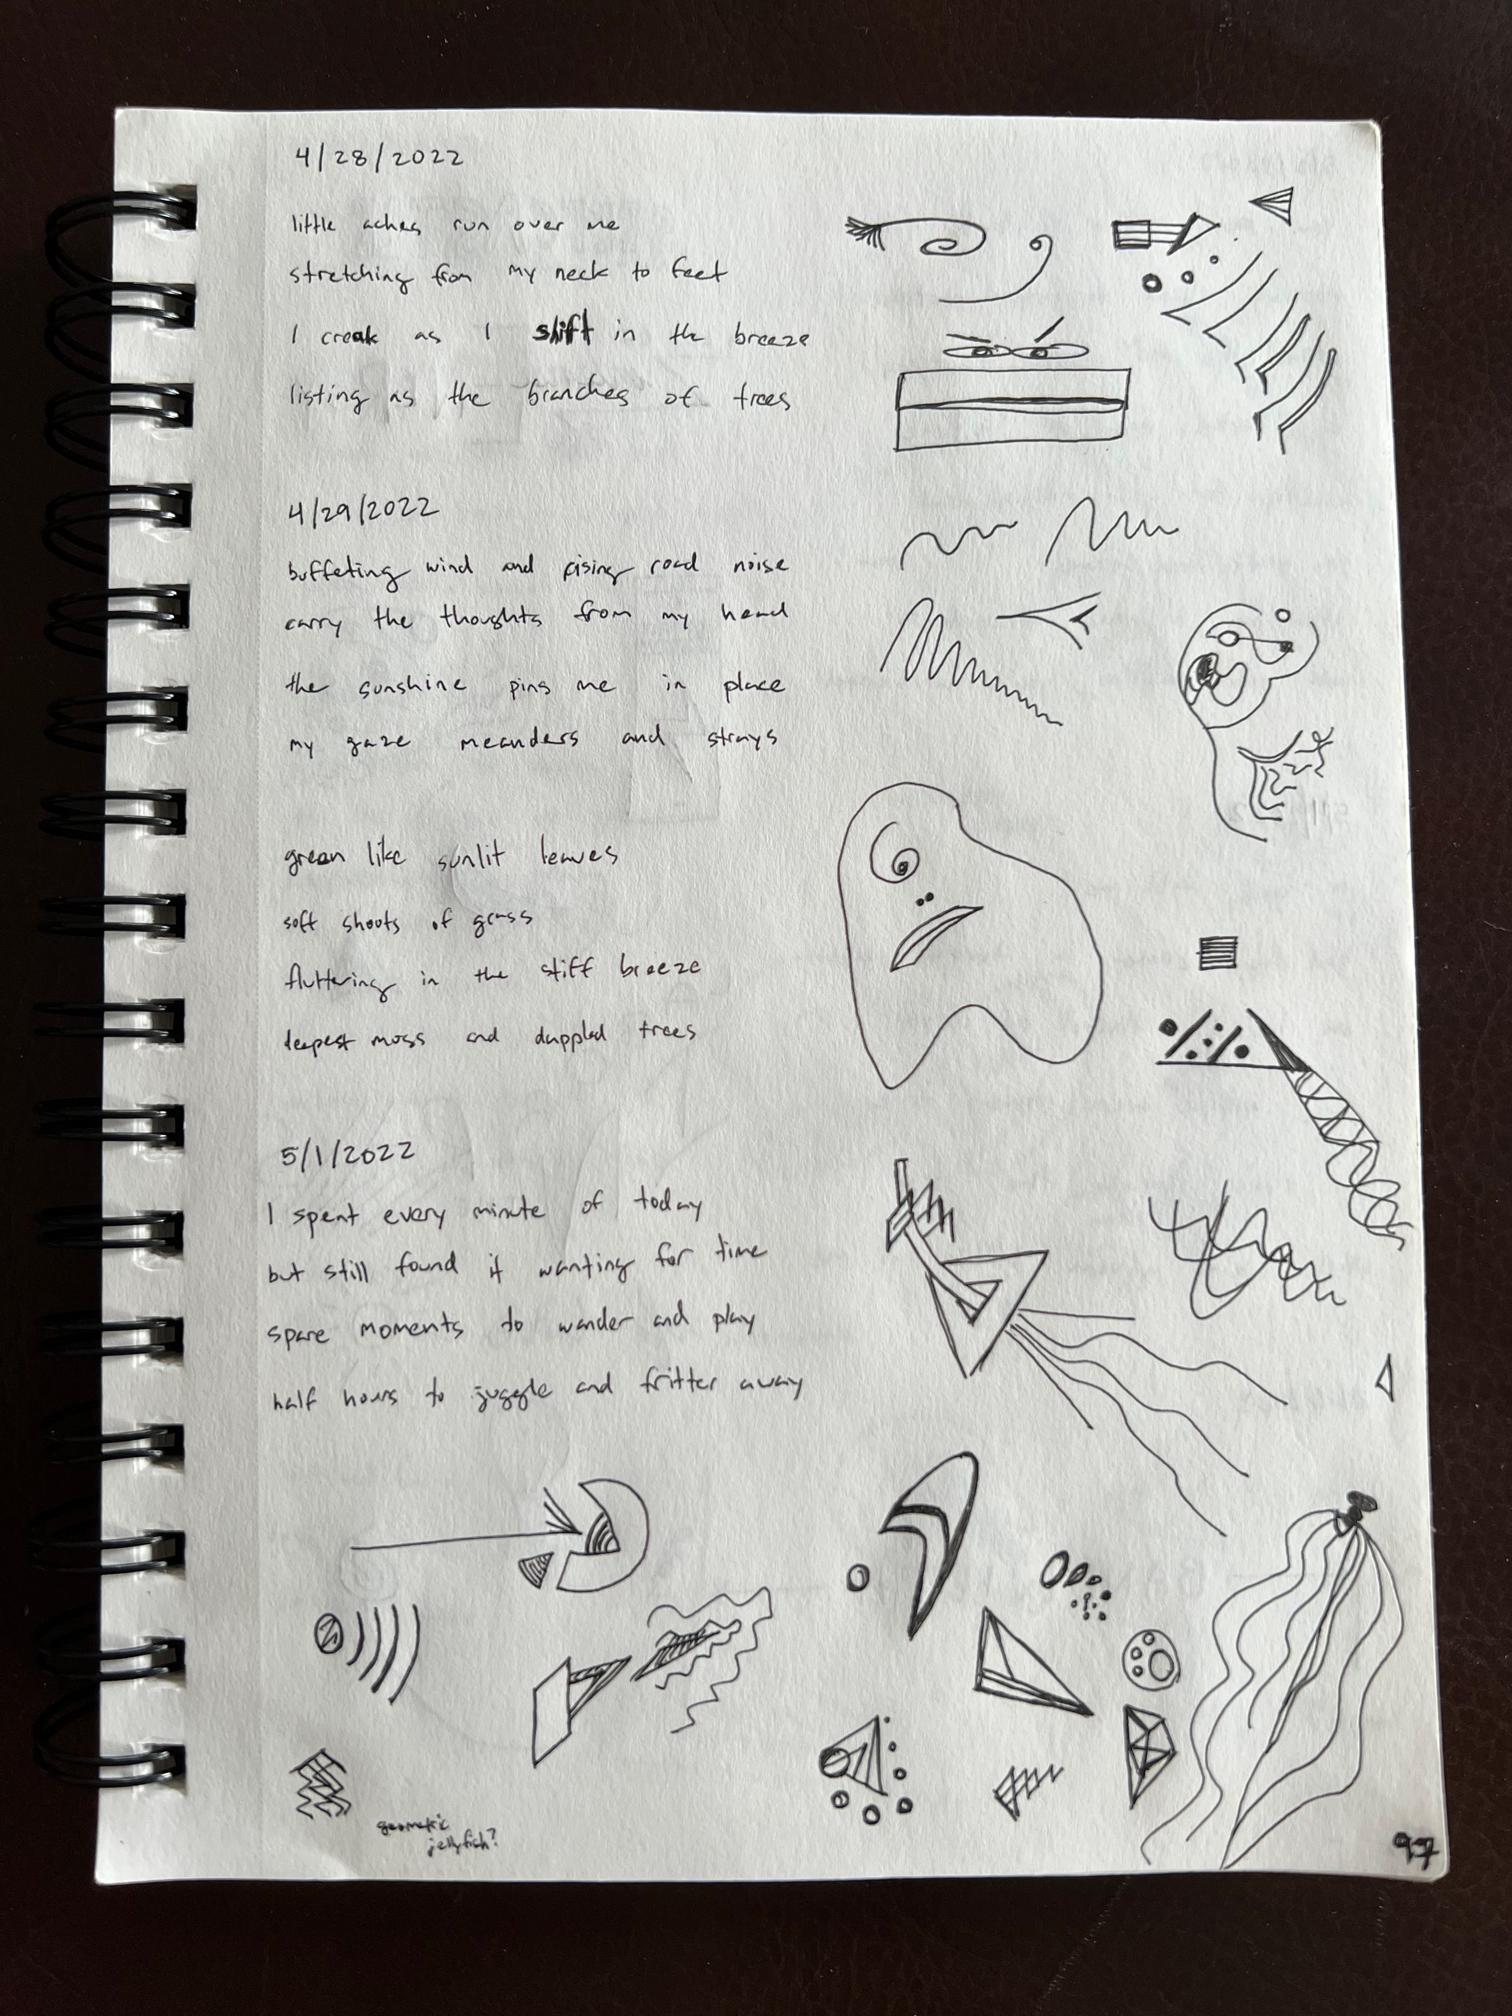 4/28/2022
little aches run over me
stretching from my neck to feet
I creak as I shift in the breeze
listing as the branches of trees
4/29/2022
buffeting wind and rising road noise
carry the thoughts from my head
the sunshine pins me in place
my gaze meanders and strays
green like sunlit leaves
soft shoots of grass
fluttering in the stiff breeze
deepest moss and dappled trees
5/1/2022
I spent every minute of today
but still found it wanting for time
spare moments to wander and play
half hours to juggle and fritter away
geometric
jellyfish?
97